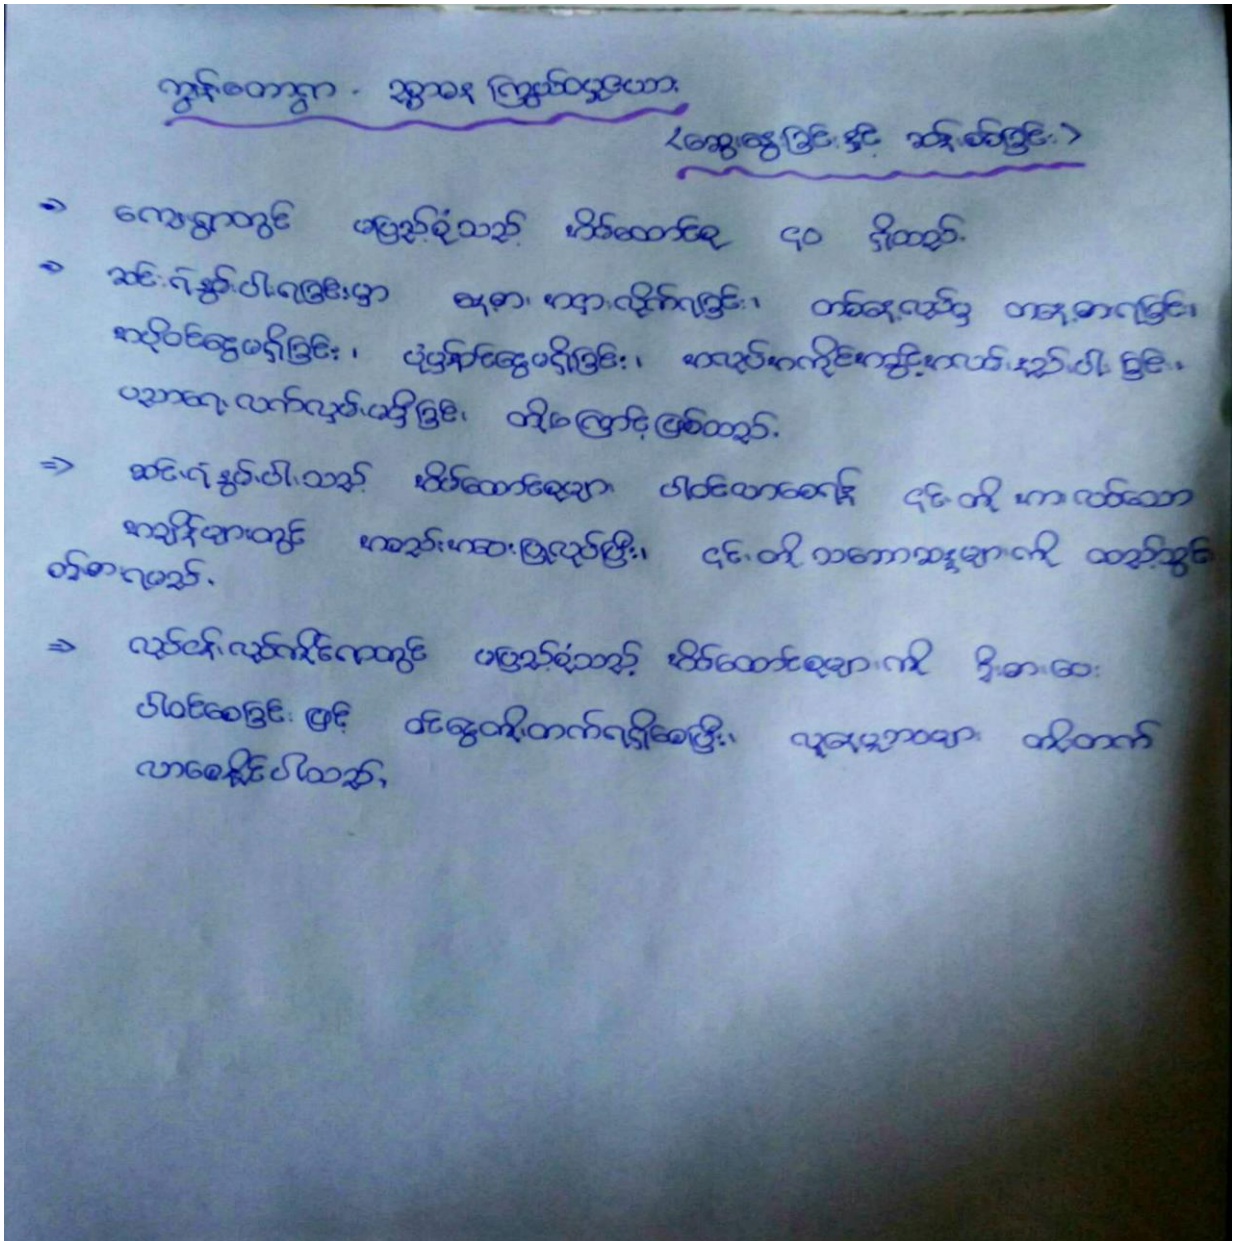 ကျွန်တောရွာ - ဥစ္စာဓန ကြွယ်ဝမှုဇယား
<ဆွေးနွေးခြင်းနှင့် ဆန်းစစ်ခြင်း>
⇒ ကျေးရွာတွင် မပြည့်စုံသည့် အိမ်ထောင်စု ၄၀ ရှိသည်.
⇒ ဆင်းရဲနွမ်းပါးရခြင်းမှာ နေ့စား အငှားလိုက်ရခြင်း၊ တစ်နေ့လုပ်မှ တနေ့စားရခြင်း၊
အပိုဝင်ငွေမရှိခြင်း၊ ပုံမှန်ဝင်ငွေမရှိခြင်း၊ အလုပ်အကိုင်အခွင့်အလမ်းနည်းပါးခြင်း၊
ပညာရေး လက်လှမ်းမမှီခြင်း တို့ကြောင့်ဖြစ်သည်.
⇒ ဆင်းရဲနွမ်းပါးသည့် အိမ်ထောင်စုများ ပါဝင်လာစေရန် ၎င်းတို့ အားလပ်သော
အချိန်များတွင် အစည်းအဝေးပြုလုပ်ပြီး၊ ၎င်းတို့ သဘောဆန္ဒများကို ထည့်သွင်း
စဉ်းစားရမည်.
⇒ လုပ်ငန်းလုပ်ကိုင်ရာတွင် မပြည့်စုံသည့် အိမ်ထောင်စုများကို ဦးစားပေး
ပါဝင်စေခြင်းဖြင့် ဝင်ငွေတိုးတက်ရရှိစေပြီး၊ လူနေမှုဘဝများ တိုးတက်
လာစေနိုင်ပါသည်.